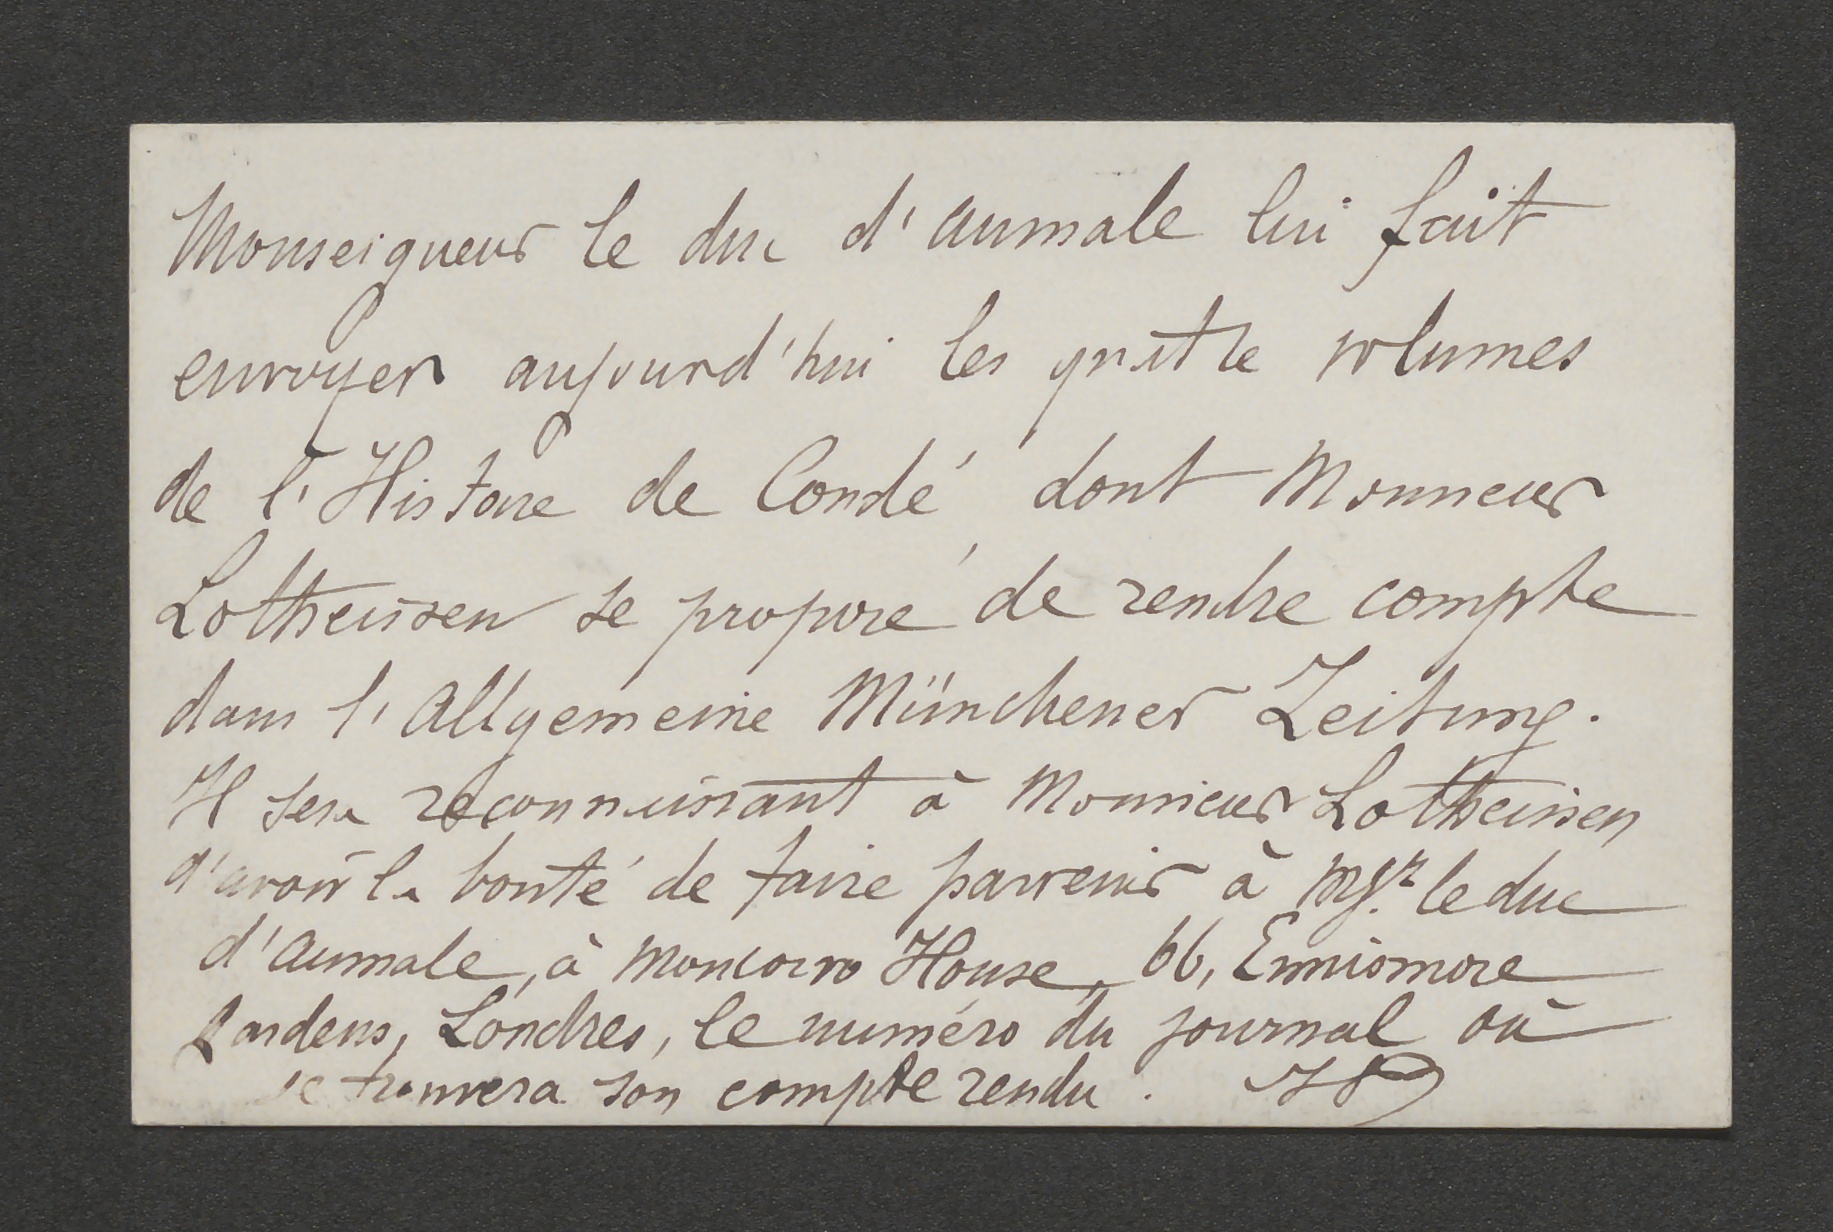 Monseigneur le duc d'aumale lui fait
envoyer aujourd'hui les quatre volumes
de l'Histoire de Condé dont Monsieur
Lotheissen se propose de rendre compte
dans l'Allgemeine Münchener Zeitung.
Il sera reconnaissant à Monsieur Lotheissen
d'avoir la bonté de faire parvenir à Mgr. le duc
d'aumale, à Moncorvo House, 66, Ennismore
Gardens, Londres, le numéro du journal où
se trouvera son compte rendu.